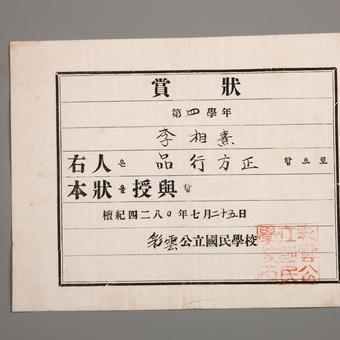 賞狀
第四學年
李相熹
右人은 品行方正 함으로
本狀을授與함
檀紀四二八〇年七月二十五日
彩雲公立國民學校